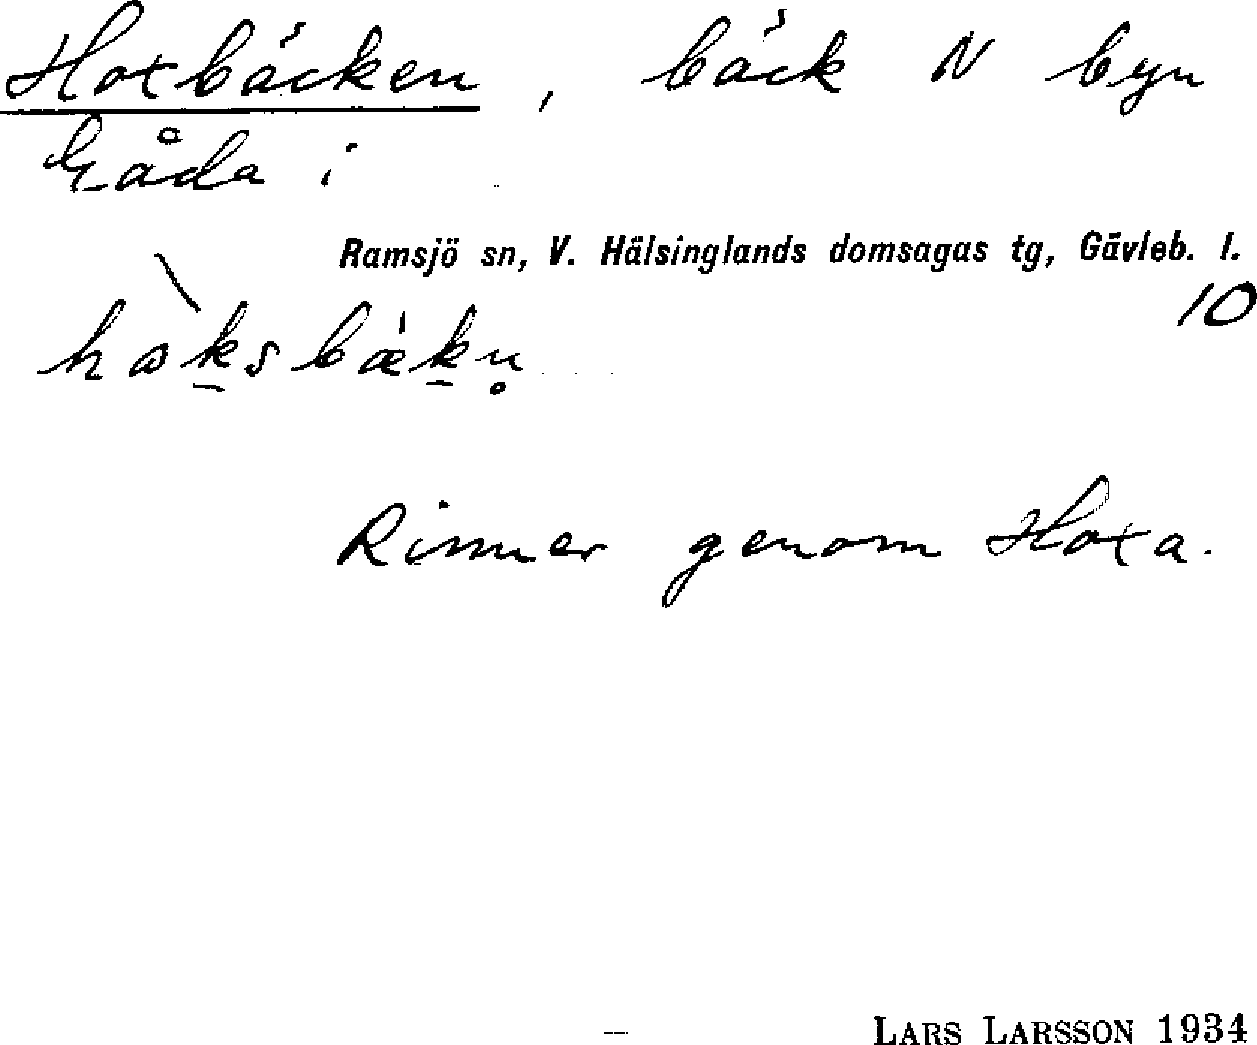 Hoxbäcken, bäck N byn
Gåda i
Ramsjö sn, V. Hälsinglands domsagas tg, Gävleb. l.
10
Rinner genom Hoxa.
–
LARS LARSSON 1934